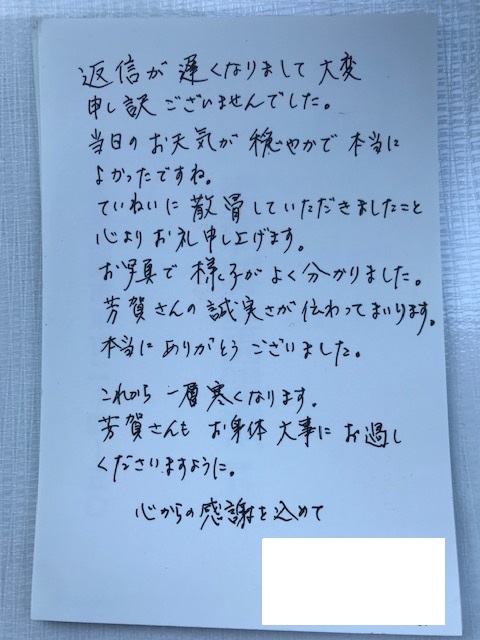 返信が遅くなりまして大変
申し訳ございませんでした。
当日のお天気が穏やかで本当に
よかったですね。
ていねいに散骨していただきましたこと
心よりお礼申し上げます。
お写真で様子がよく分かりました。
芳賀さんの誠実さが伝わってまいります。
本当にありがとうございました。
これから一層寒くなります。
芳賀さんもお身体大事にお過し
くださいますように。
心からの感謝を込めて